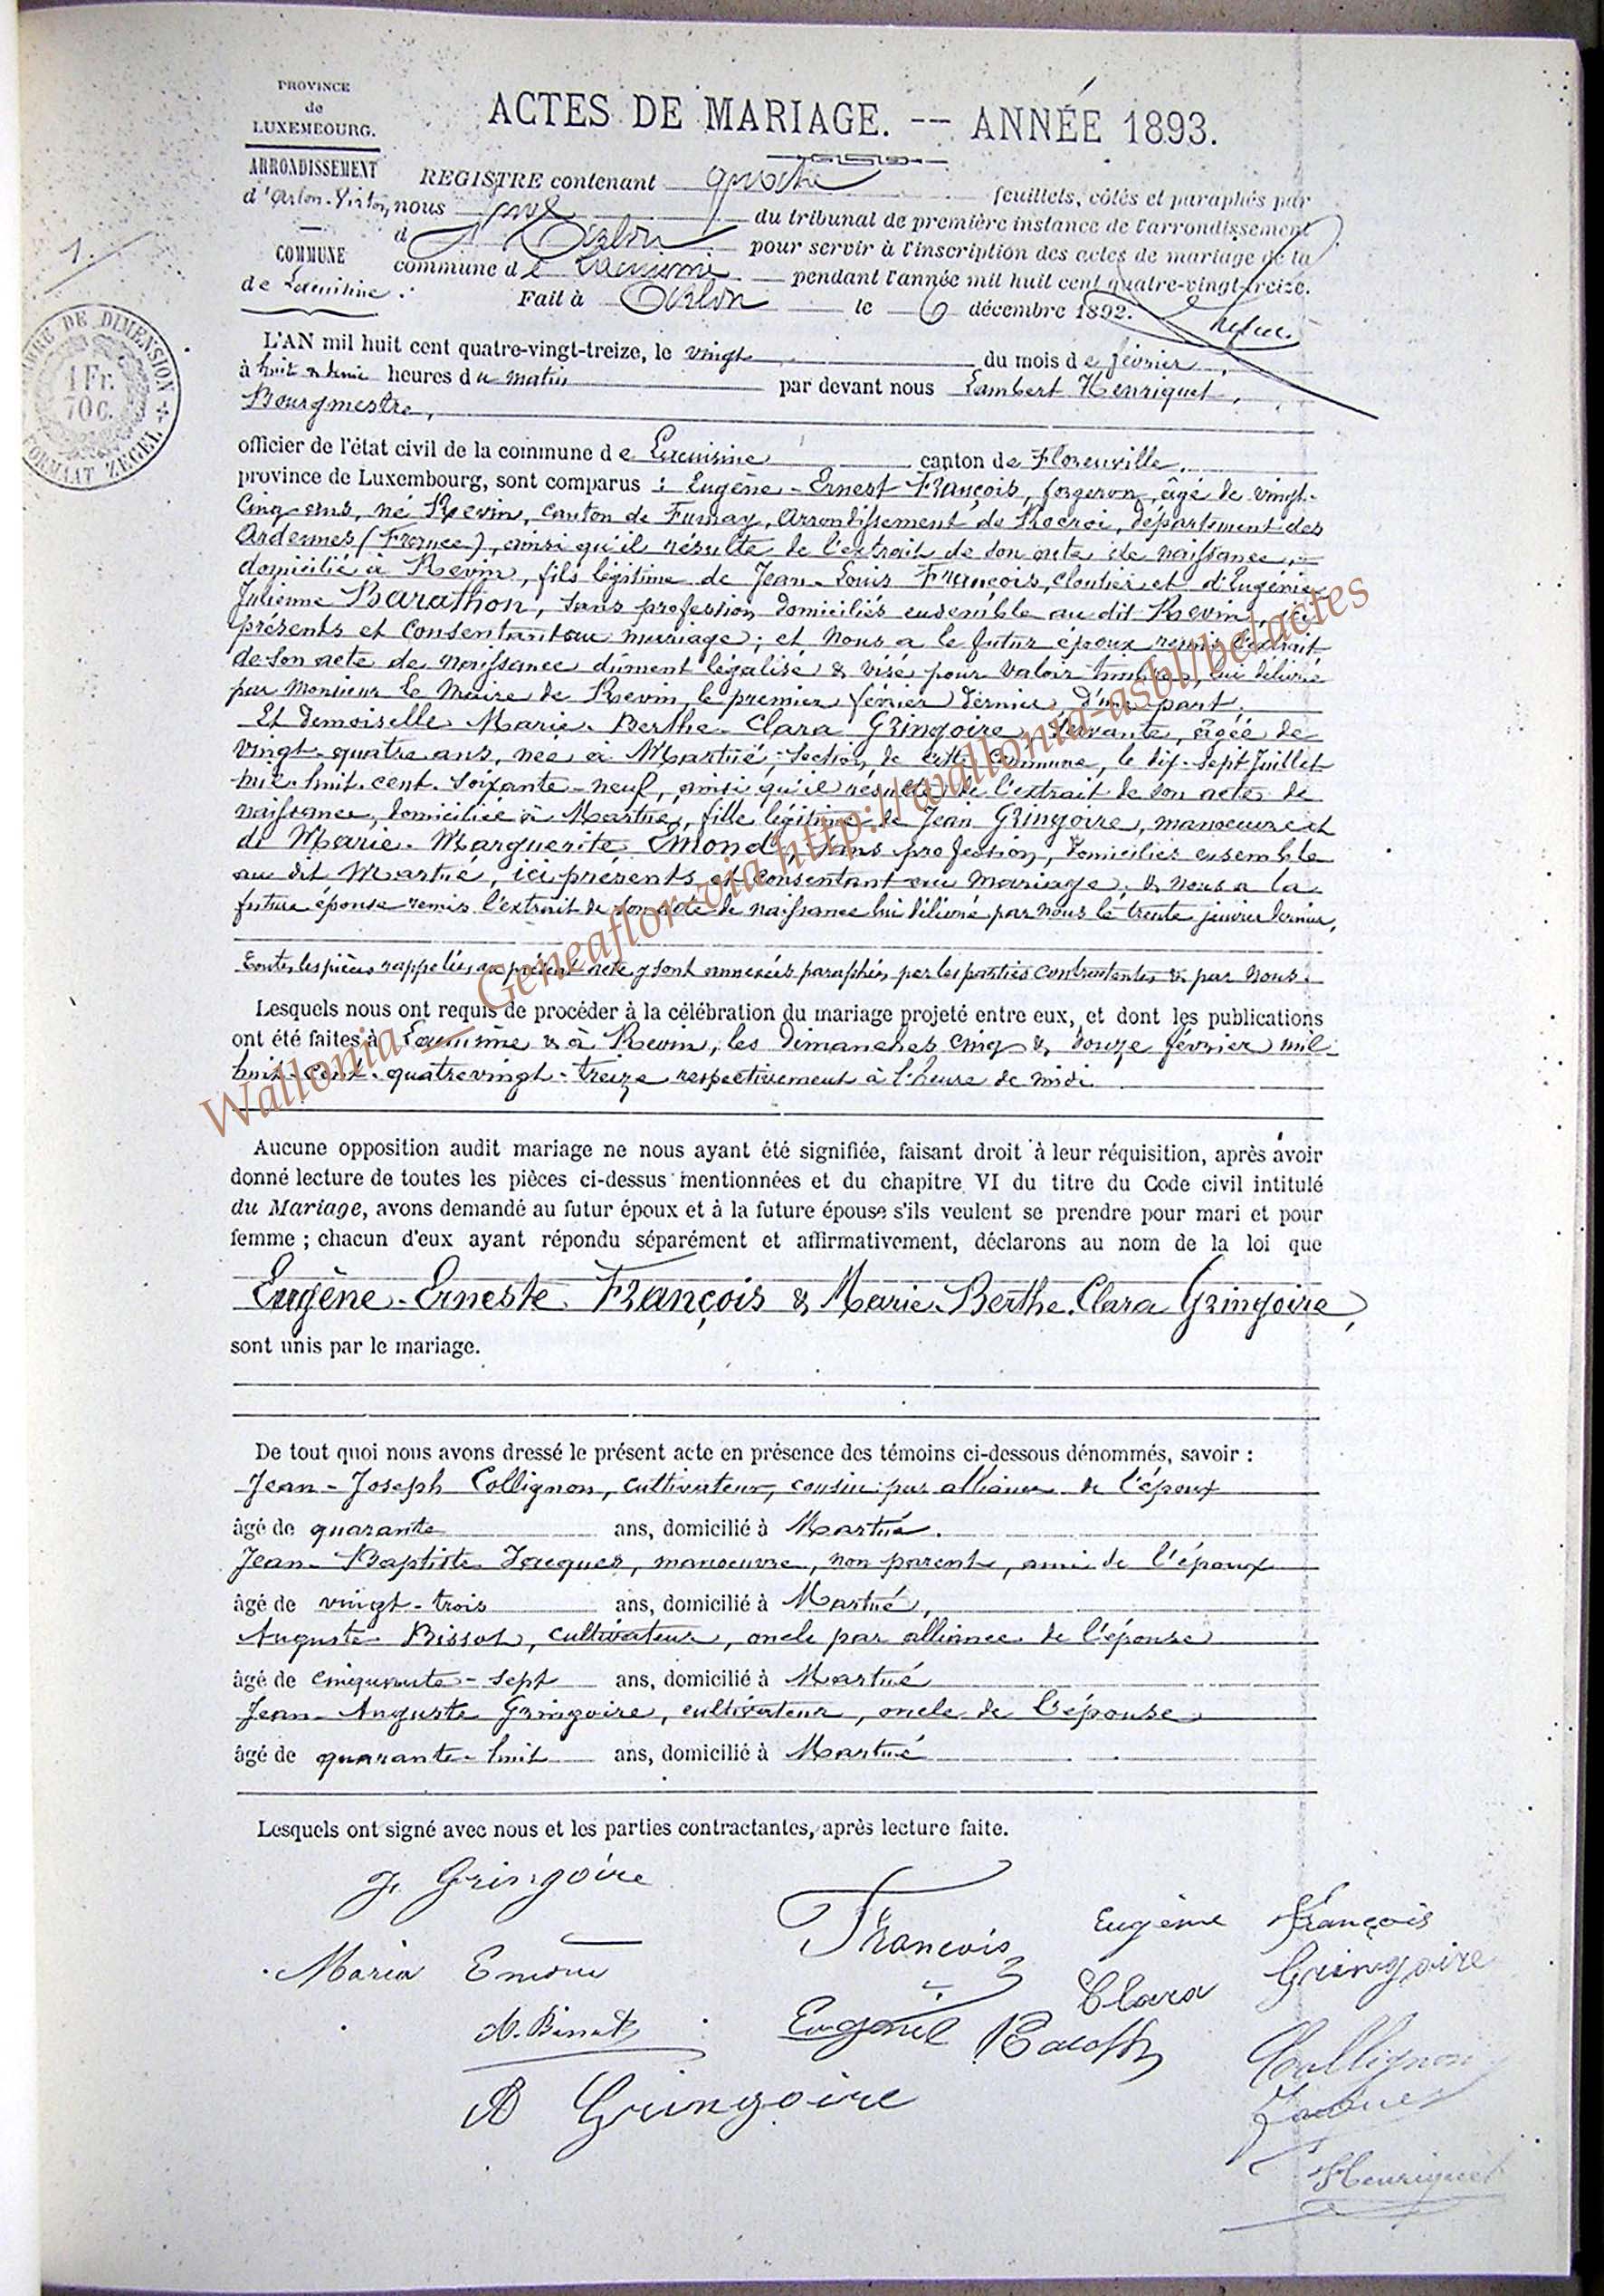 PROVINCE
de
LUXEMBOURG.
ARRONDISSEMENT
d'Arlon-Virton,
COMMUNE
de Lacuisine.
1./
TIMBRE DE DIMENSION
1 Fr.
70 c.
FORMAAT ZEGEL
ACTES DE MARIAGE. -- ANNÉE 1893.
REGISTRE contenant quatre feuillets, côtés et paraphés par
nous du tribunal de première instance de l'arrondissement
d'Arlon pour servir à l'inscription des actes de mariage de la
commune de Lacuisine pendant l'année mil huit cent quatre-vingt-treize.
Fait à Arlon le 6 décembre 1892.
L'AN mil huit cent quatre-vingt-treize, le vingt du mois de février,
à huit & demie heures du matin par devant nous Lambert Henriquet,
Bourgmestre,
officier de l'état civil de la commune de Lacuisine canton de Florenville,
province de Luxembourg, sont comparus : Eugène-Ernest François, forgeron, âgé de vingt-
cinq ans, né Revin, canton de Fumay, arrondissement de Rocroi, département des
Ardennes (France), ainsi qu'il résulte de l'extrait de son acte de naissance,
domicilié à Revin, fils légitime de Jean-Louis François, cloutier et d'Eugénie
Julienne Barathon, sans profession, domiciliés ensemble au dit Revin, ici
présents et consentant au mariage; et nous a le futur époux remis l'extrait
de son acte de naissance dûment légalisé & visé pour valoir timbre, lui délivré
par Monsieur le Maire de Revin, le premier février dernier, d'une part.
Et demoiselle Marie-Berthe-Clara Gringoire, servante, âgée de
vingt-quatre ans, née à Martué, section de cette commune, le dix-sept juillet
mil-huit-cent-soixante-neuf, ainsi qu'il résulte de l'extrait de son acte de
naissance, domiciliée à Martué, fille légitime de Jean Gringoire, manoeuvre et
de Marie-Marguerite Emond, sans profession, domiciliés ensemble
au dit Martué, ici présents et consentant au mariage, & nous a la
future épouse remis l'extrait de son acte de naissance lui délivré par nous le trente janvier dernier,
Toutes les pièces rappelées au présent acte y sont annexées paraphées par les parties contractantes & par nous.
Lesquels nous ont requis de procéder à la célébration du mariage projeté entre eux, et dont les publications
ont été faites à Lacuisine & à Revin, les dimanches cinq & douze février mil-
huit-cent-quatrevingt-treize respectivement à l'heure de midi
Aucune opposition audit mariage ne nous ayant été signifiée, faisant droit à leur réquisition, après avoir
donné lecture de toutes les pièces ci-dessus mentionnées et du chapitre VI du titre du Code civil intitulé
du Mariage, avons demandé au futur époux et à la future épouse s'ils veulent se prendre pour mari et pour
femme ; chacun d'eux ayant répondu séparément et affirmativement, déclarons au nom de la loi que
Eugène-Erneste François & Marie-Berthe-Clara Gringoire,
sont unis par le mariage.
De tout quoi nous avons dressé le présent acte en présence des témoins ci-dessous dénommés, savoir :
Jean-Joseph Collignon, cultivateur, cousin par alliance de l'époux
âgé de quarante ans, domicilié à Martué.
Jean-Baptiste Jacques, manoeuvre, non parent, ami de l'époux
âgé de vingt-trois ans, domicilié à Martué,
Auguste Bissot, cultivateur, oncle par alliance de l'épouse
âgé de cinquante-sept ans, domicilié à Martué
Jean-Auguste Gringoire, cultivateur, oncle de l'épouse
âgé de quarante-huit ans, domicilié à Martué
Lesquels ont signé avec nous et les parties contractantes, après lecture faite.
J. Gringoire
François
Eugène François
Maria Emond
Clara Gringoire
Collignon
A Gringoire
Jacques
Henriquet
Wallonia _ Geneaflor via http://wallonia-asbl/be/actes